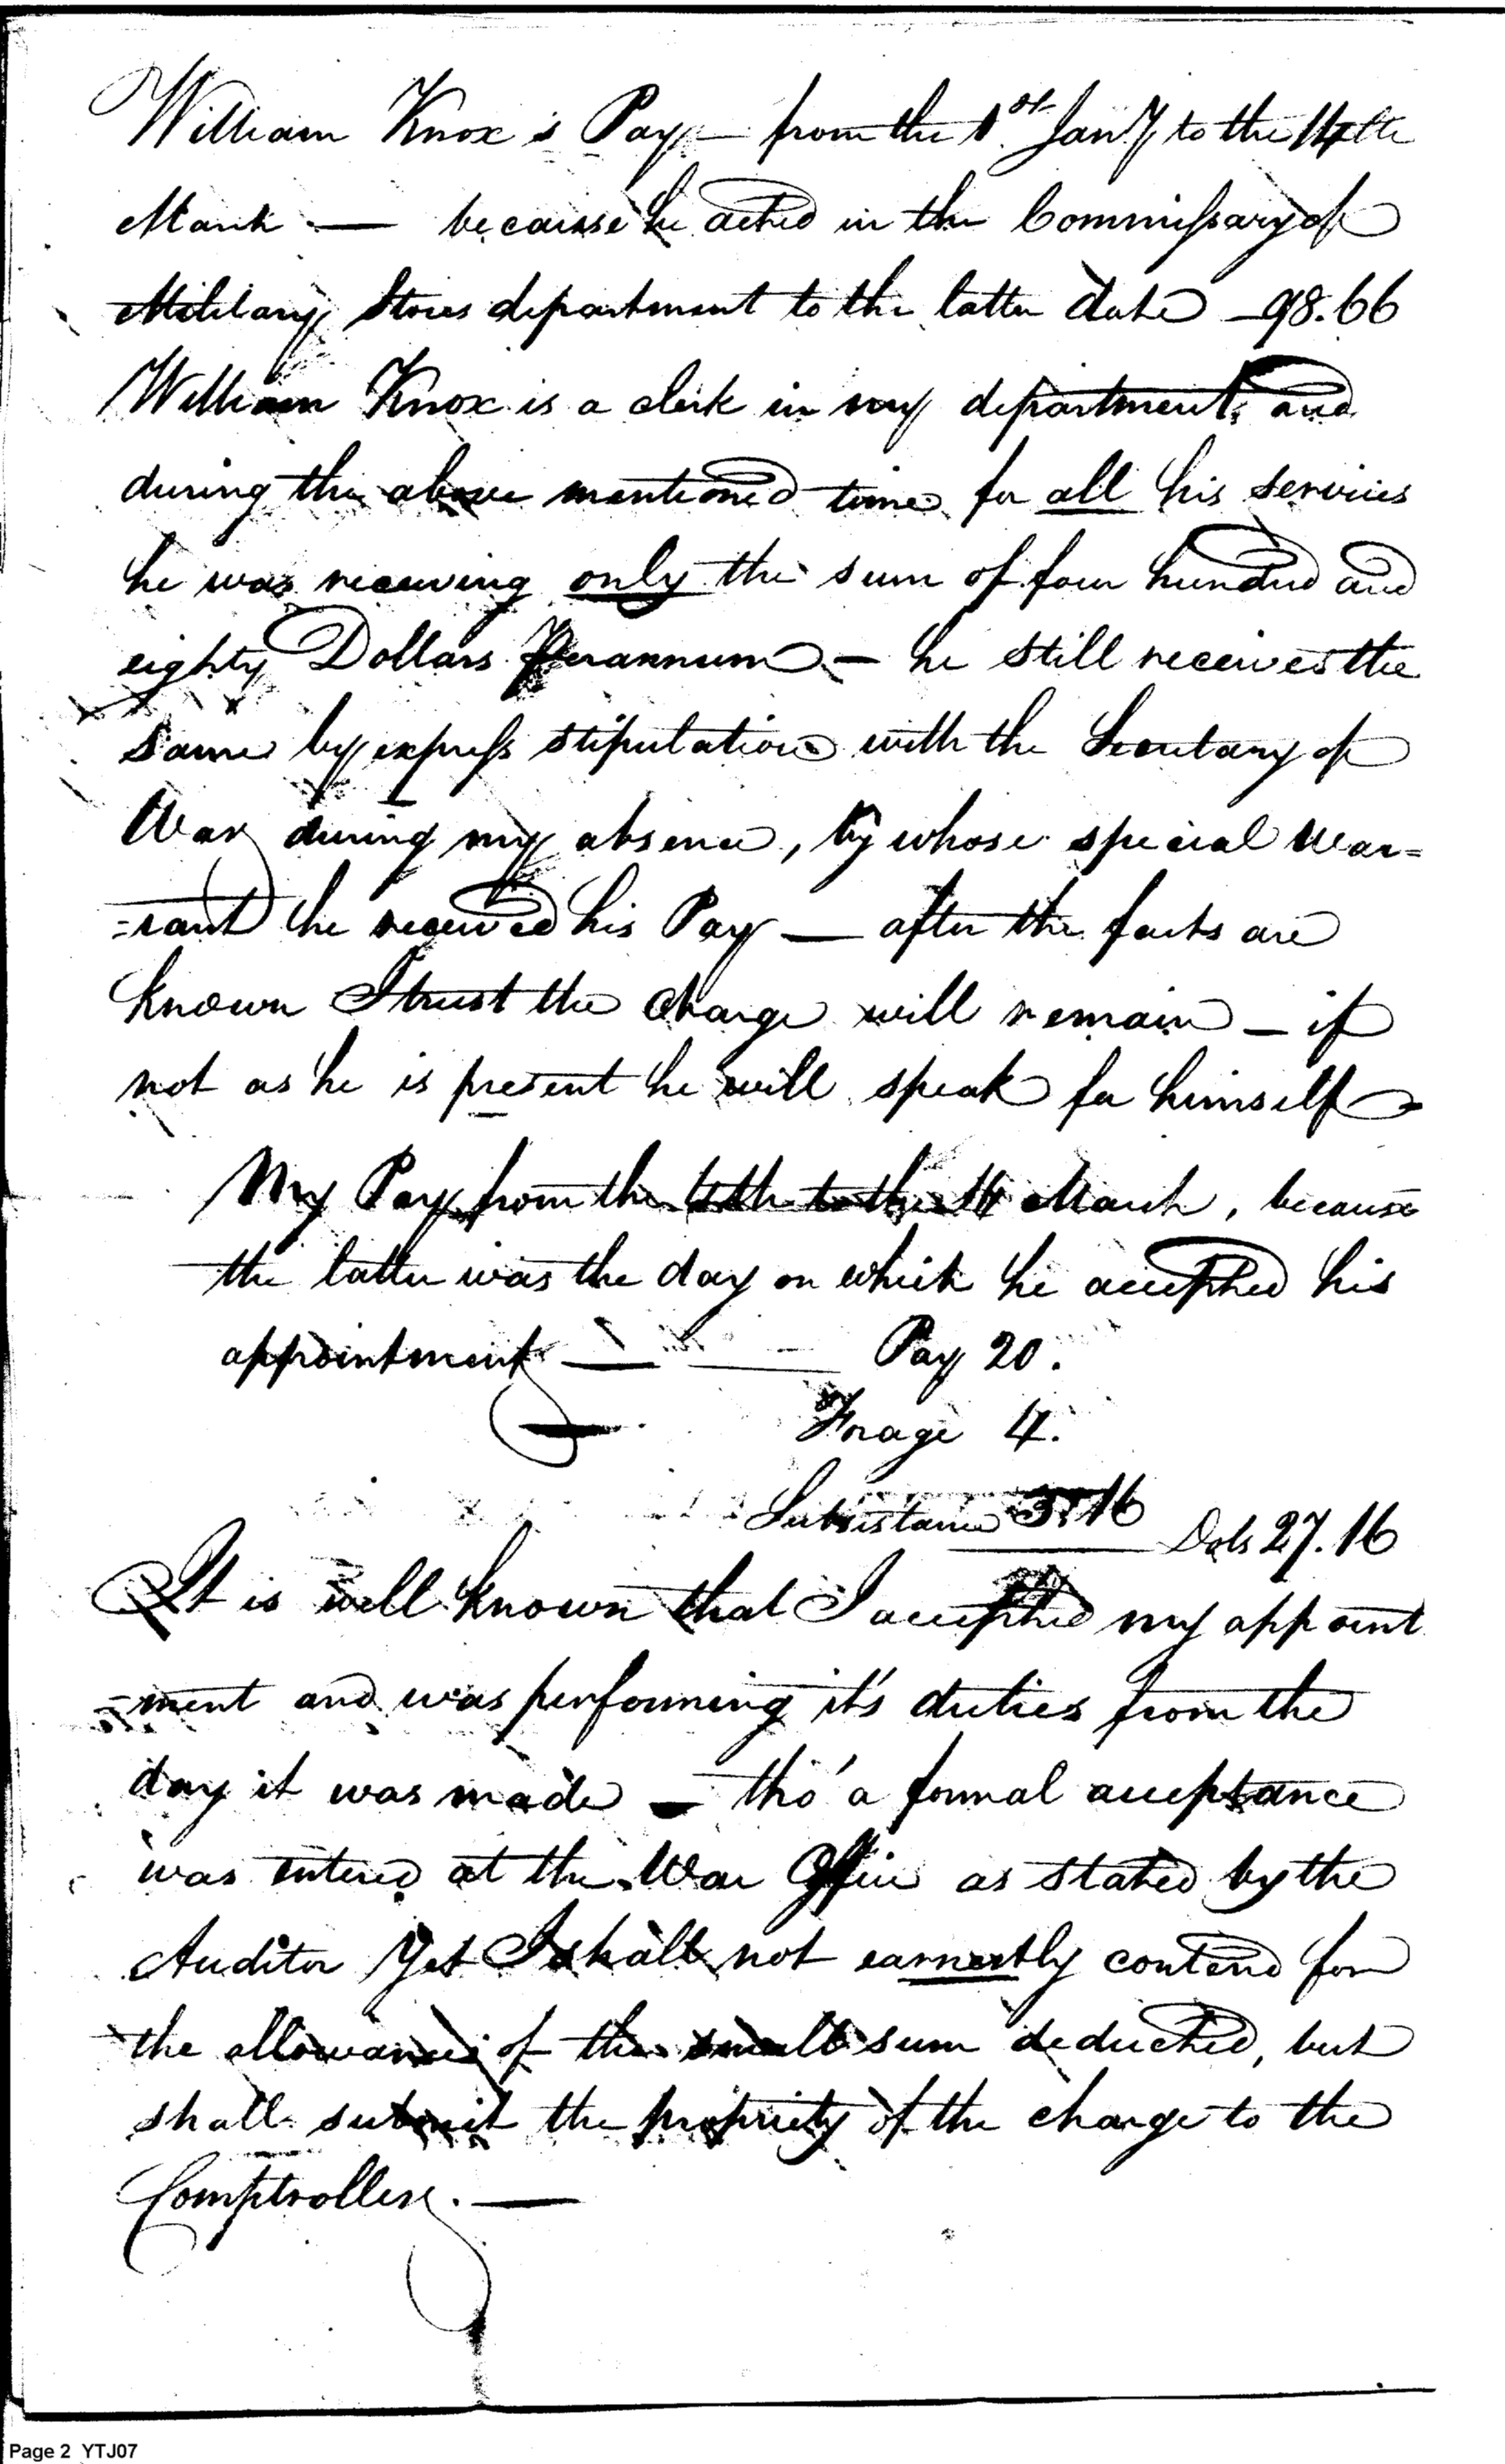 William Knox's Pay — from the 1st Jany to the 14th
March — because he acted in the Commissary of
Military Stores department to the latter date — 98.66
William Knox is a clerk in my department, and
during the above mentioned time for all his services
he was receiving only the sum of four hundred and
eighty Dollars Perannum — he still receives the
same by express stipulation with the Secretary of
War during my absence, by whose special War=
=rant he received his Pay — after the facts are
known I trust the charge will remain — if
not as he is present he will speak for himself
My Pay from the to the 14 March, because
the latter was the day on which he accepted his
appointment — — Pay 20.
Forage 4.
Subsistance 3.16 Dols 27.16
It is well known that I accepted my appoint
=ment and was performing it's duties from the
day it was made — tho' a formal acceptance
was entered at the War Office as stated by the
Auditor Yet I shall not earnestly contend for
the allowance of the small sum deducted, but
shall submit the propriety of the charge to the
Comptroller. —
Page 2 YTJ07